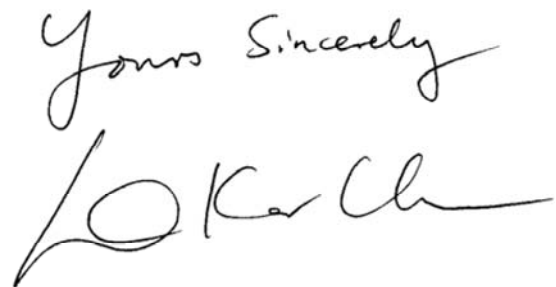 Yours Sincerely
Lo Kar Ch